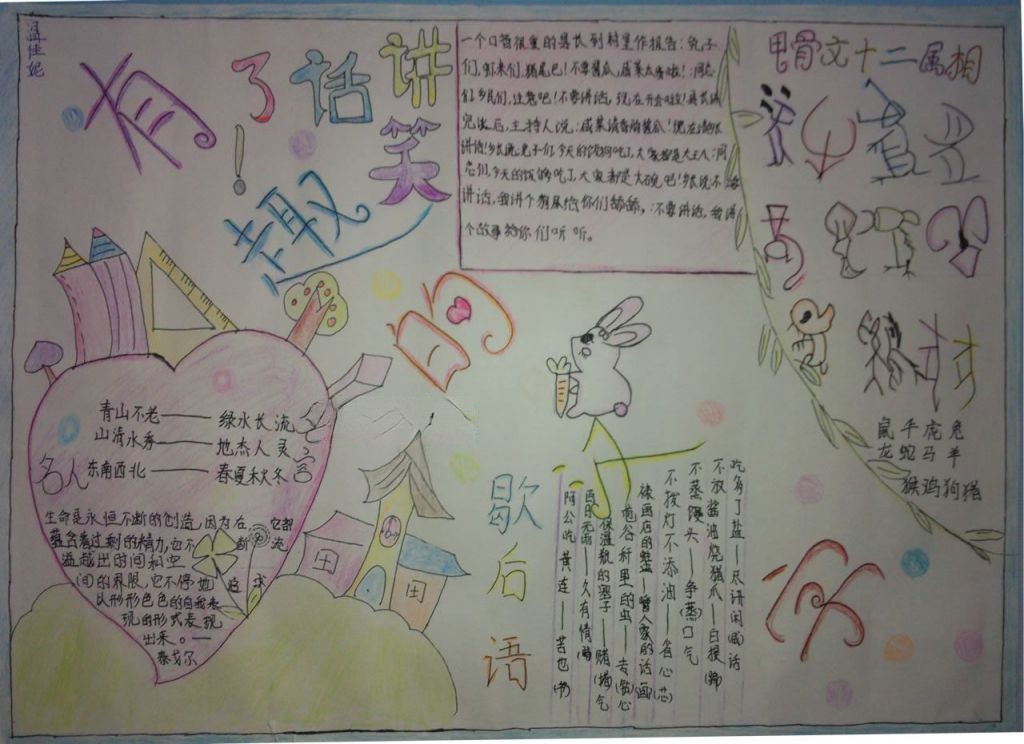 有趣的汉字
讲笑话了!
一个口音很重的县长到村里作报告:兔子
们,虾米们,猪尾巴!不要酱瓜,咸菜太贵啦!:同志
们,乡民们,注意吧!不要讲话,现在开会啦!县长讲
完以后,主持人说:咸菜请香肠酱瓜!:现在请乡长
讲话!乡长说:兔子们,今天的饭狗吃了,大家都是大王八:同
志们,今天的饭够吃了,大家都是大碗吧!不要
讲话,我讲个狗屎给你们舔舔,:不要讲话,我讲
个故事给你们听听。
甲骨文十二属相
鼠牛虎兔
龙蛇马羊
猴鸡狗猪
名人名言
青山不老——绿水长流
山清水秀——地杰人灵
东南西北——春夏秋冬
生命是永恒不断的创造,因为在它内部
蕴含着过剩的精力,它不断流
溢越出时间和空
间的界限,它不停地追求
以形形色色的自我表
现的形式表现
出来。——
泰戈尔
歇后语
吃多了盐——尽讲闲(咸)话
不放酱油烧猪爪——白提(蹄)
不蒸馒头——争(蒸)口气
不拨灯不添油——省心(芯)
裱画店的——人家的话(画)
炮谷秆里的虫——去(蛀)心
保温瓶的塞子——赌(堵)气
百日无雨——久有情(晴)
阿公吃黄连——苦也(爷)